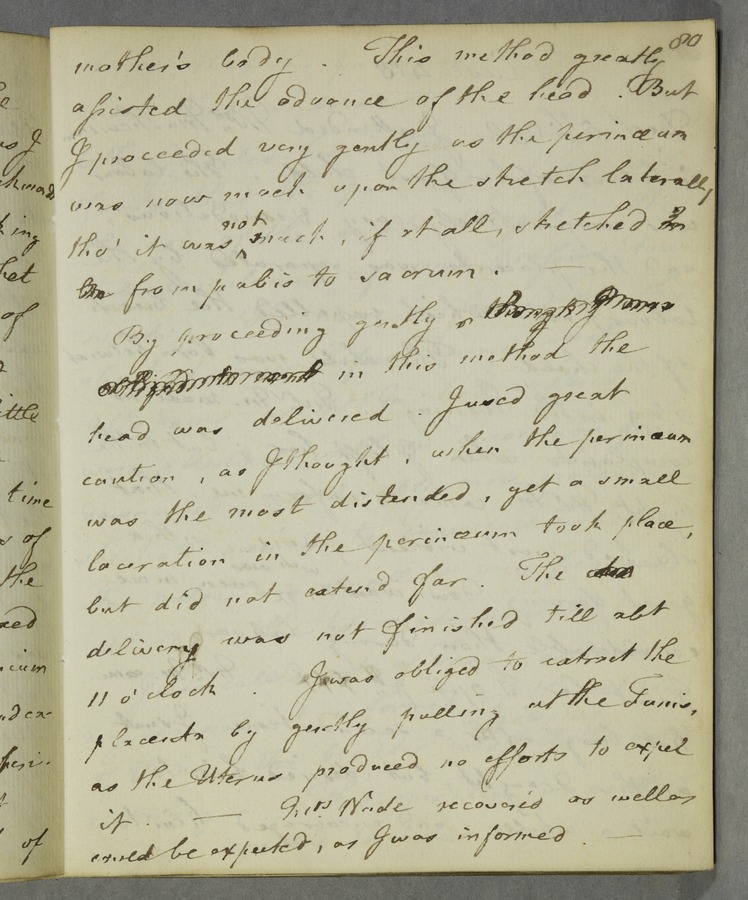 80
mother's body . This method greatly
assisted the advance of the head . But
I proceeded very gently as the perinæum
was now much upon the stretch laterally,
tho' it was not much, if at all, stretched
from pubis to sacrum . —
By proceeding gently
in this method the
head was delivered . I used great
caution , as I thought , when the perinæum
was the most distended , yet a small
laceration in the perinæum took place,
but did not extend far . The
delivery was not finished till abt
11 o'clock . I was obliged to extract the
placenta by gently pulling at the Funis,
as the Uterus produced no efforts to expel
it . — Mrs Wade recovered as well as
could be expected , as I was informed . —
he
as I
king
het
of
ittle
time
of
the
of